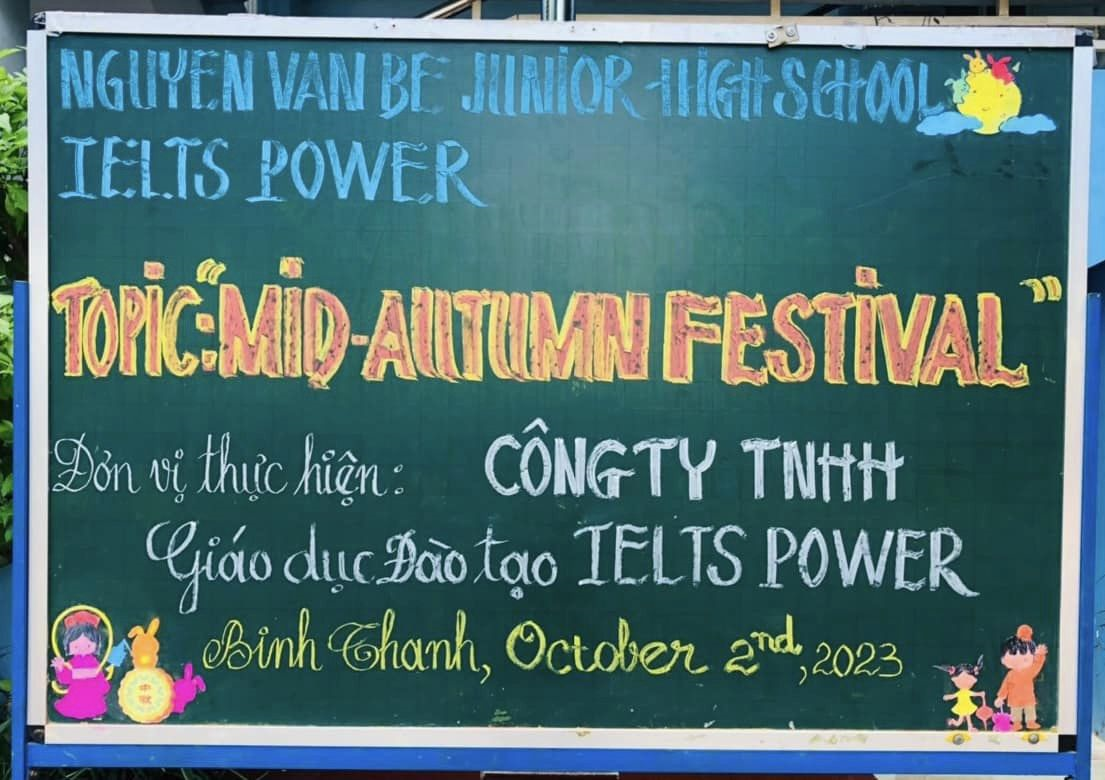 NGUYEN VAN BE JUNIOR HIGH SCHOOL
IELTS POWER
TOPIC: "MID-AUTUMN FESTIVAL"
Đơn vị thực hiện: CÔNG TY TNHH
Giáo dục Đào tạo IELTS POWER
Binh Thanh, October 2nd, 2023